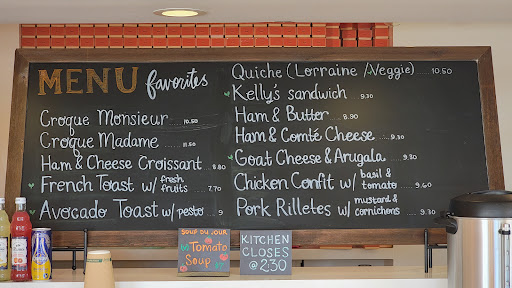 MENU favorites
Croque Monsieur 10.50
Croque Madame 11.50
Ham & Cheese Croissant 8.80
French Toast w/ fresh fruits 7.70
Avocado Toast w/ pesto 9
Quiche (Lorraine / Veggie) 10.50
Kelly's sandwich 9.30
Ham & Butter 8.90
Ham & Comté Cheese 9.30
Goat Cheese & Arugala 9.30
Chicken Confit w/ basil & tomato 9.60
Pork Rilletes w/ mustard & cornichons 9.30
SOUP DU JOUR
Tomato
Soup
KITCHEN
CLOSES
@ 2:30